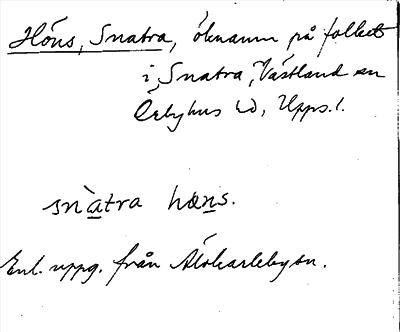 Höns, Snatra, öknamn på folket
i Snatra, Västland sn
Örbyhus hd, Upps. l.
snàtra hæns.
Enl. uppg. från Älvkarleby sn.